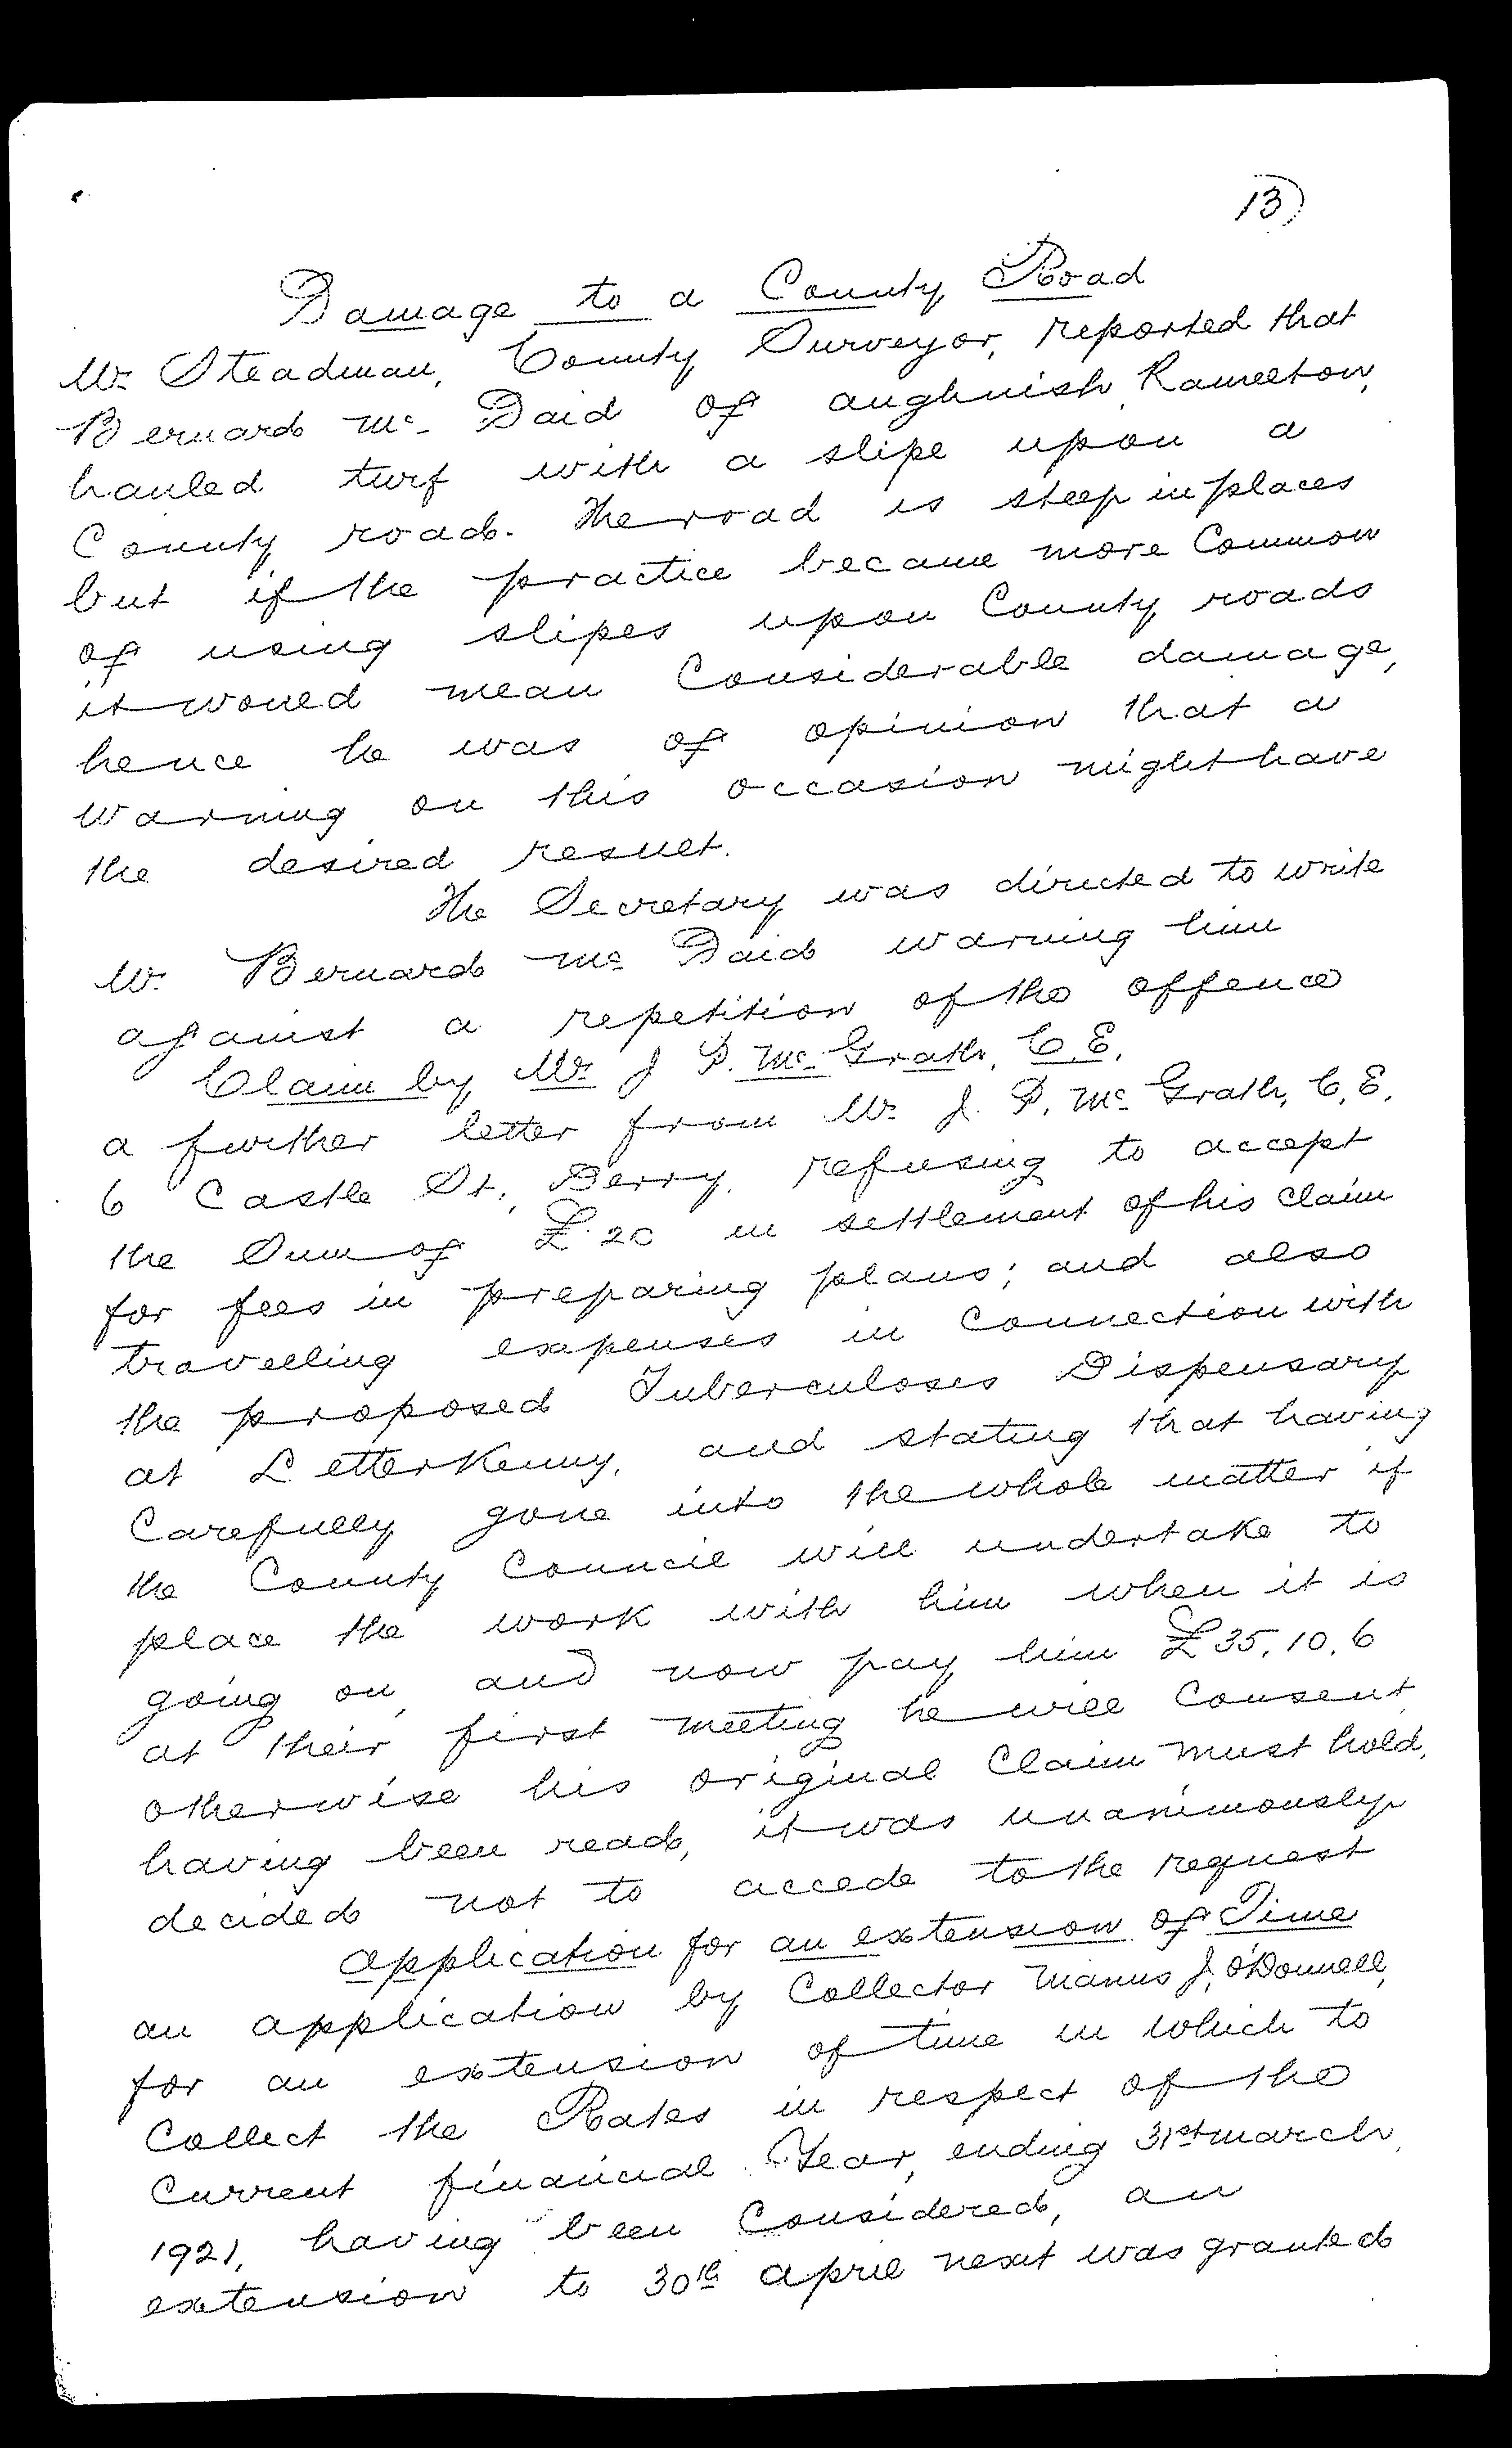 13)
Damage to a County Road
Mr Steadman, County Surveyor, reported that
Bernard Mc Daid of Aughnish, Ramelton,
hauled turf with a slipe upon a
County road. The road is steep in places
but if the practice became more Common
of using slipes upon County roads
it would mean Considerable damage,
hence he was of opinion that a
warning on this occasion might have
the desired result.
The Secretary was directed to write
Mr. Bernard Mc Daid warning him
against a repetition of the offence
Claim by Mr J P. Mc Grath, C.E.
a further letter from Mr J. P. Mc Grath, C.E.
6 Castle St, Derry, refusing to accept
the Sum of £20 in settlement of his Claim
for fees in preparing plans; and also
travelling expenses in Connection with
the proposed Tuberculoses Dispensary
at Letterkenny, and stating that having
Carefully gone into the whole matter if
the County Council will undertake to
place the work with him when it is
going on, and now pay him £35.10.6
at their first meeting he will Consent
otherwise his original Claim must hold,
having been read, it was unanimously
decided not to accede to the request
Application for an extension of Time
an application by Collector Manus J. O'Donnell,
for an extension of time in which to
Collect the Rates in respect of the
Current financial Year, ending 31st March,
1921, having been Considered, an
extension to 30th April next was granted